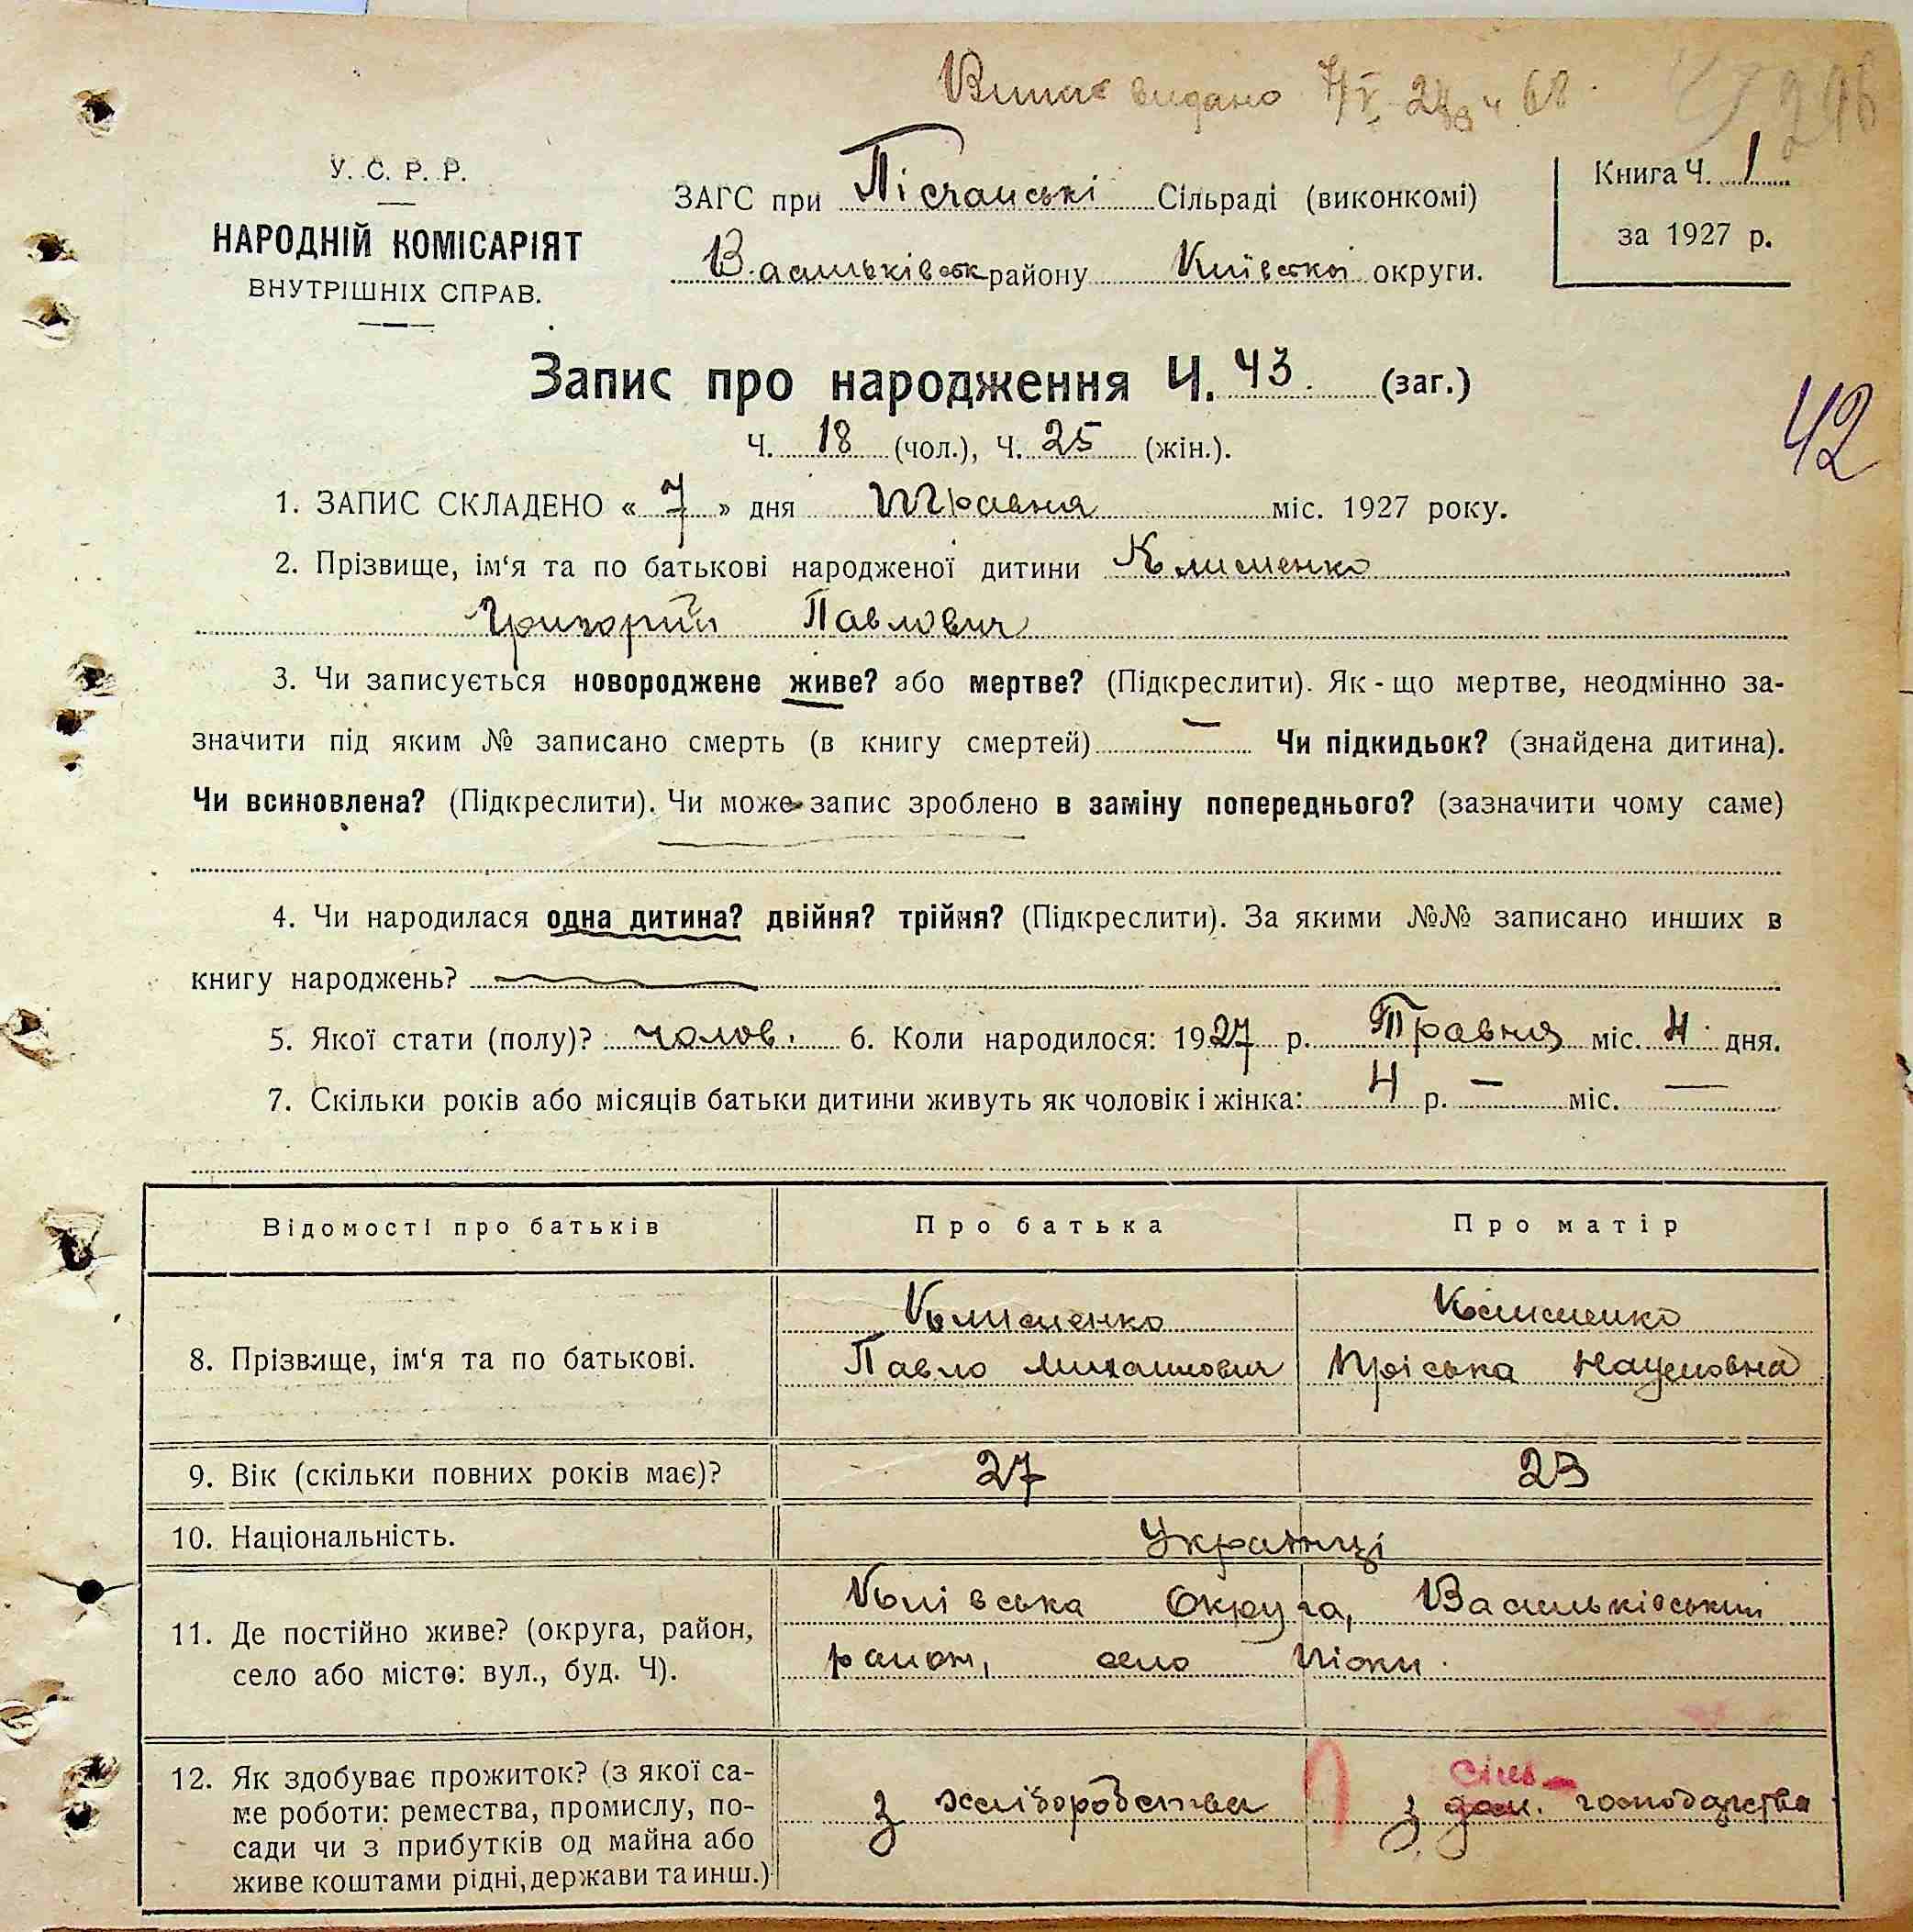 Витяг видано
У. С. Р. Р.
НАРОДНІЙ КОМІСАРІЯТ
ВНУТРІШНІХ СПРАВ.
ЗАГС при Пісчанські Сільраді (виконкомі)
Васильківськ району Київської округи.
Книга Ч. 1
за 1927 р.
Запис про народження Ч. 43. (заг.)
Ч. 18 (чол.), Ч. 25 (жін.).
42
1. ЗАПИС СКЛАДЕНО « 7 » дня Травня міс. 1927 року.
2. Прізвище, ім‘я та по батькові народженої дитини Клименко
Григорій Павлович
3. Чи записується новороджене живе? або мертве? (Підкреслити). Як-що мертве, неодмінно за-
значити під яким № записано смерть (в книгу смертей) — Чи підкидьок? (знайдена дитина).
Чи всиновлена? (Підкреслити). Чи може запис зроблено в заміну попереднього? (зазначити чому саме)
4. Чи народилася одна дитина? двійня? трійня? (Підкреслити). За якими №№ записано инших в
книгу народжень?
5. Якої стати (полу)? чолов. 6. Коли народилося: 1927 р. Травня міс. 4 дня.
7. Скільки років або місяців батьки дитини живуть як чоловік і жінка: 4 р. — міс. —
Відомості про батьків Про батька Про матір
8. Прізвище, ім‘я та по батькові.
Клименко
Павло Михайлович
Клименко
Пріська Наумовна
9. Вік (скільки повних років має)? 27 23
10. Національність. Українці
11. Де постійно живе? (округа, район,
село або місто: вул., буд. Ч).
Київська Округа, Васильківський
район, село Піски.
12. Як здобуває прожиток? (з якої са-
ме роботи: ремества, промислу, по-
сади чи з прибутків од майна або
живе коштами рідні, держави та инш.)
з хліборобства
сіль-
з дом. господарства